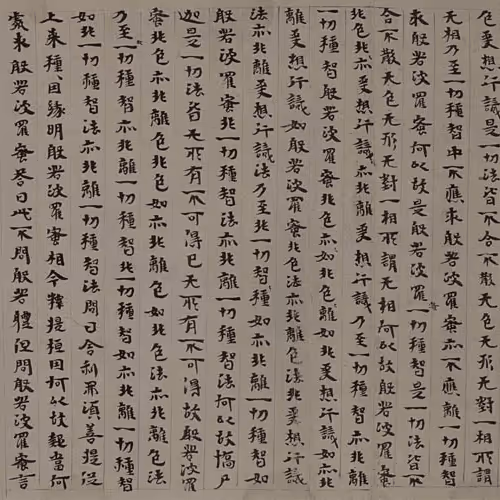 色受想行識是一切法皆不合不散无色无形无對一相所謂
无相乃至一切種智中不應求般若波羅蜜亦不應離一切種智
求般若波羅蜜何以故是般若波羅蜜一切種智是一切法皆不
合不散无色无形无對一相所謂无相何以故般若波羅蜜
非色非受想行識亦非離色離受想行識乃至非一切種智亦非離
一切種智般若波羅蜜非色如亦非離色如非受想行識如亦非
離受想行識如般若波羅蜜非色法亦非離色法非受想行識
法亦非離受想行識法乃至非一切種智如亦非離一切種智如
般若波羅蜜非一切種智法亦非離一切種智法何以故憍尸
迦是一切法皆无所有不可得已无所有不可得故般若波羅
蜜非色亦非離色非色如亦非離色如非色法亦非離色法
乃至非一切種智亦非離一切種智非一切種智如亦非離一切種智
如非一切種智法亦非離一切種智法問曰舍利弗須菩提從
上來種種因緣明般若波羅蜜相今釋提桓因何以故當何
處求般若波羅蜜答曰此不問般若體但問般若波羅蜜言